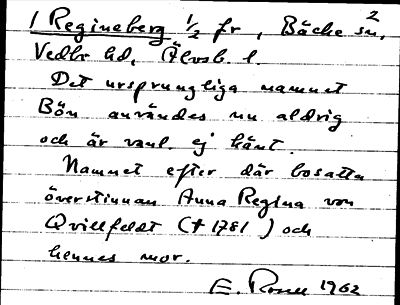 2
1 Regineberg 1/2 fr, Bäcke sn,
Vedbo hd, Älvsb. l.
Det ursprungliga namnet
Bön användes nu aldrig
och är vanl. ej känt.
Namnet efter där bosatta
överstinnan Anna Regina von
Qvillfeldt († 1781) och
hennes mor.
E. Rosell 1962